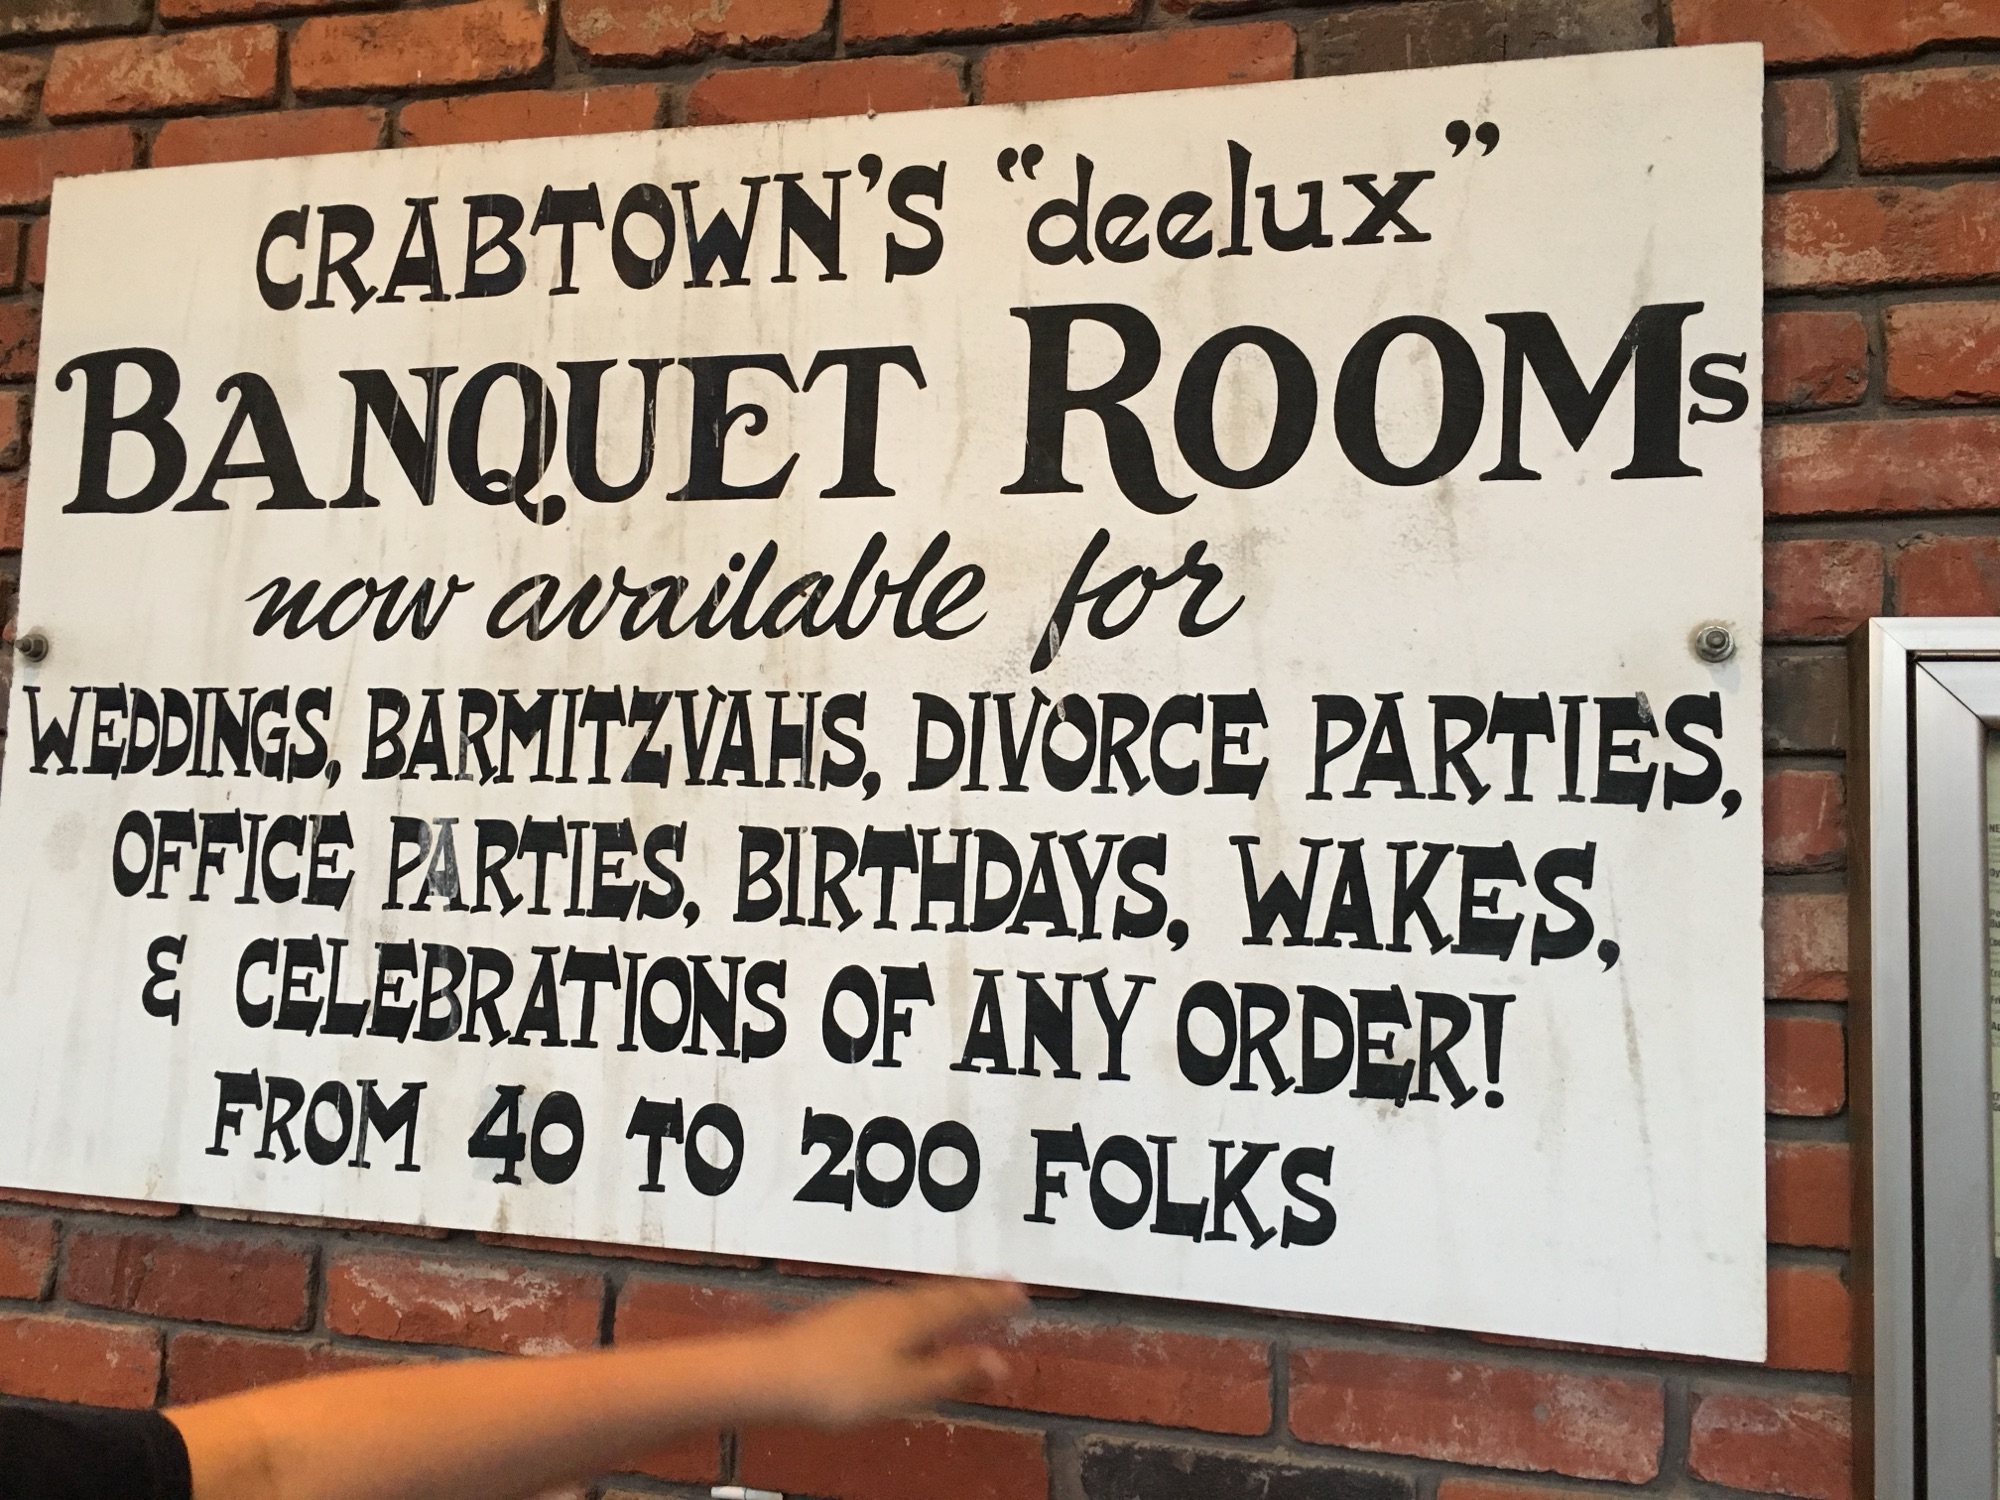 CRABTOWN'S "deelux"
BANQUET ROOMs
now available for
WEDDINGS, BARMITZVAHS, DIVORCE PARTIES,
OFFICE PARTIES, BIRTHDAYS, WAKES,
& CELEBRATIONS OF ANY ORDER!
FROM 40 TO 200 FOLKS